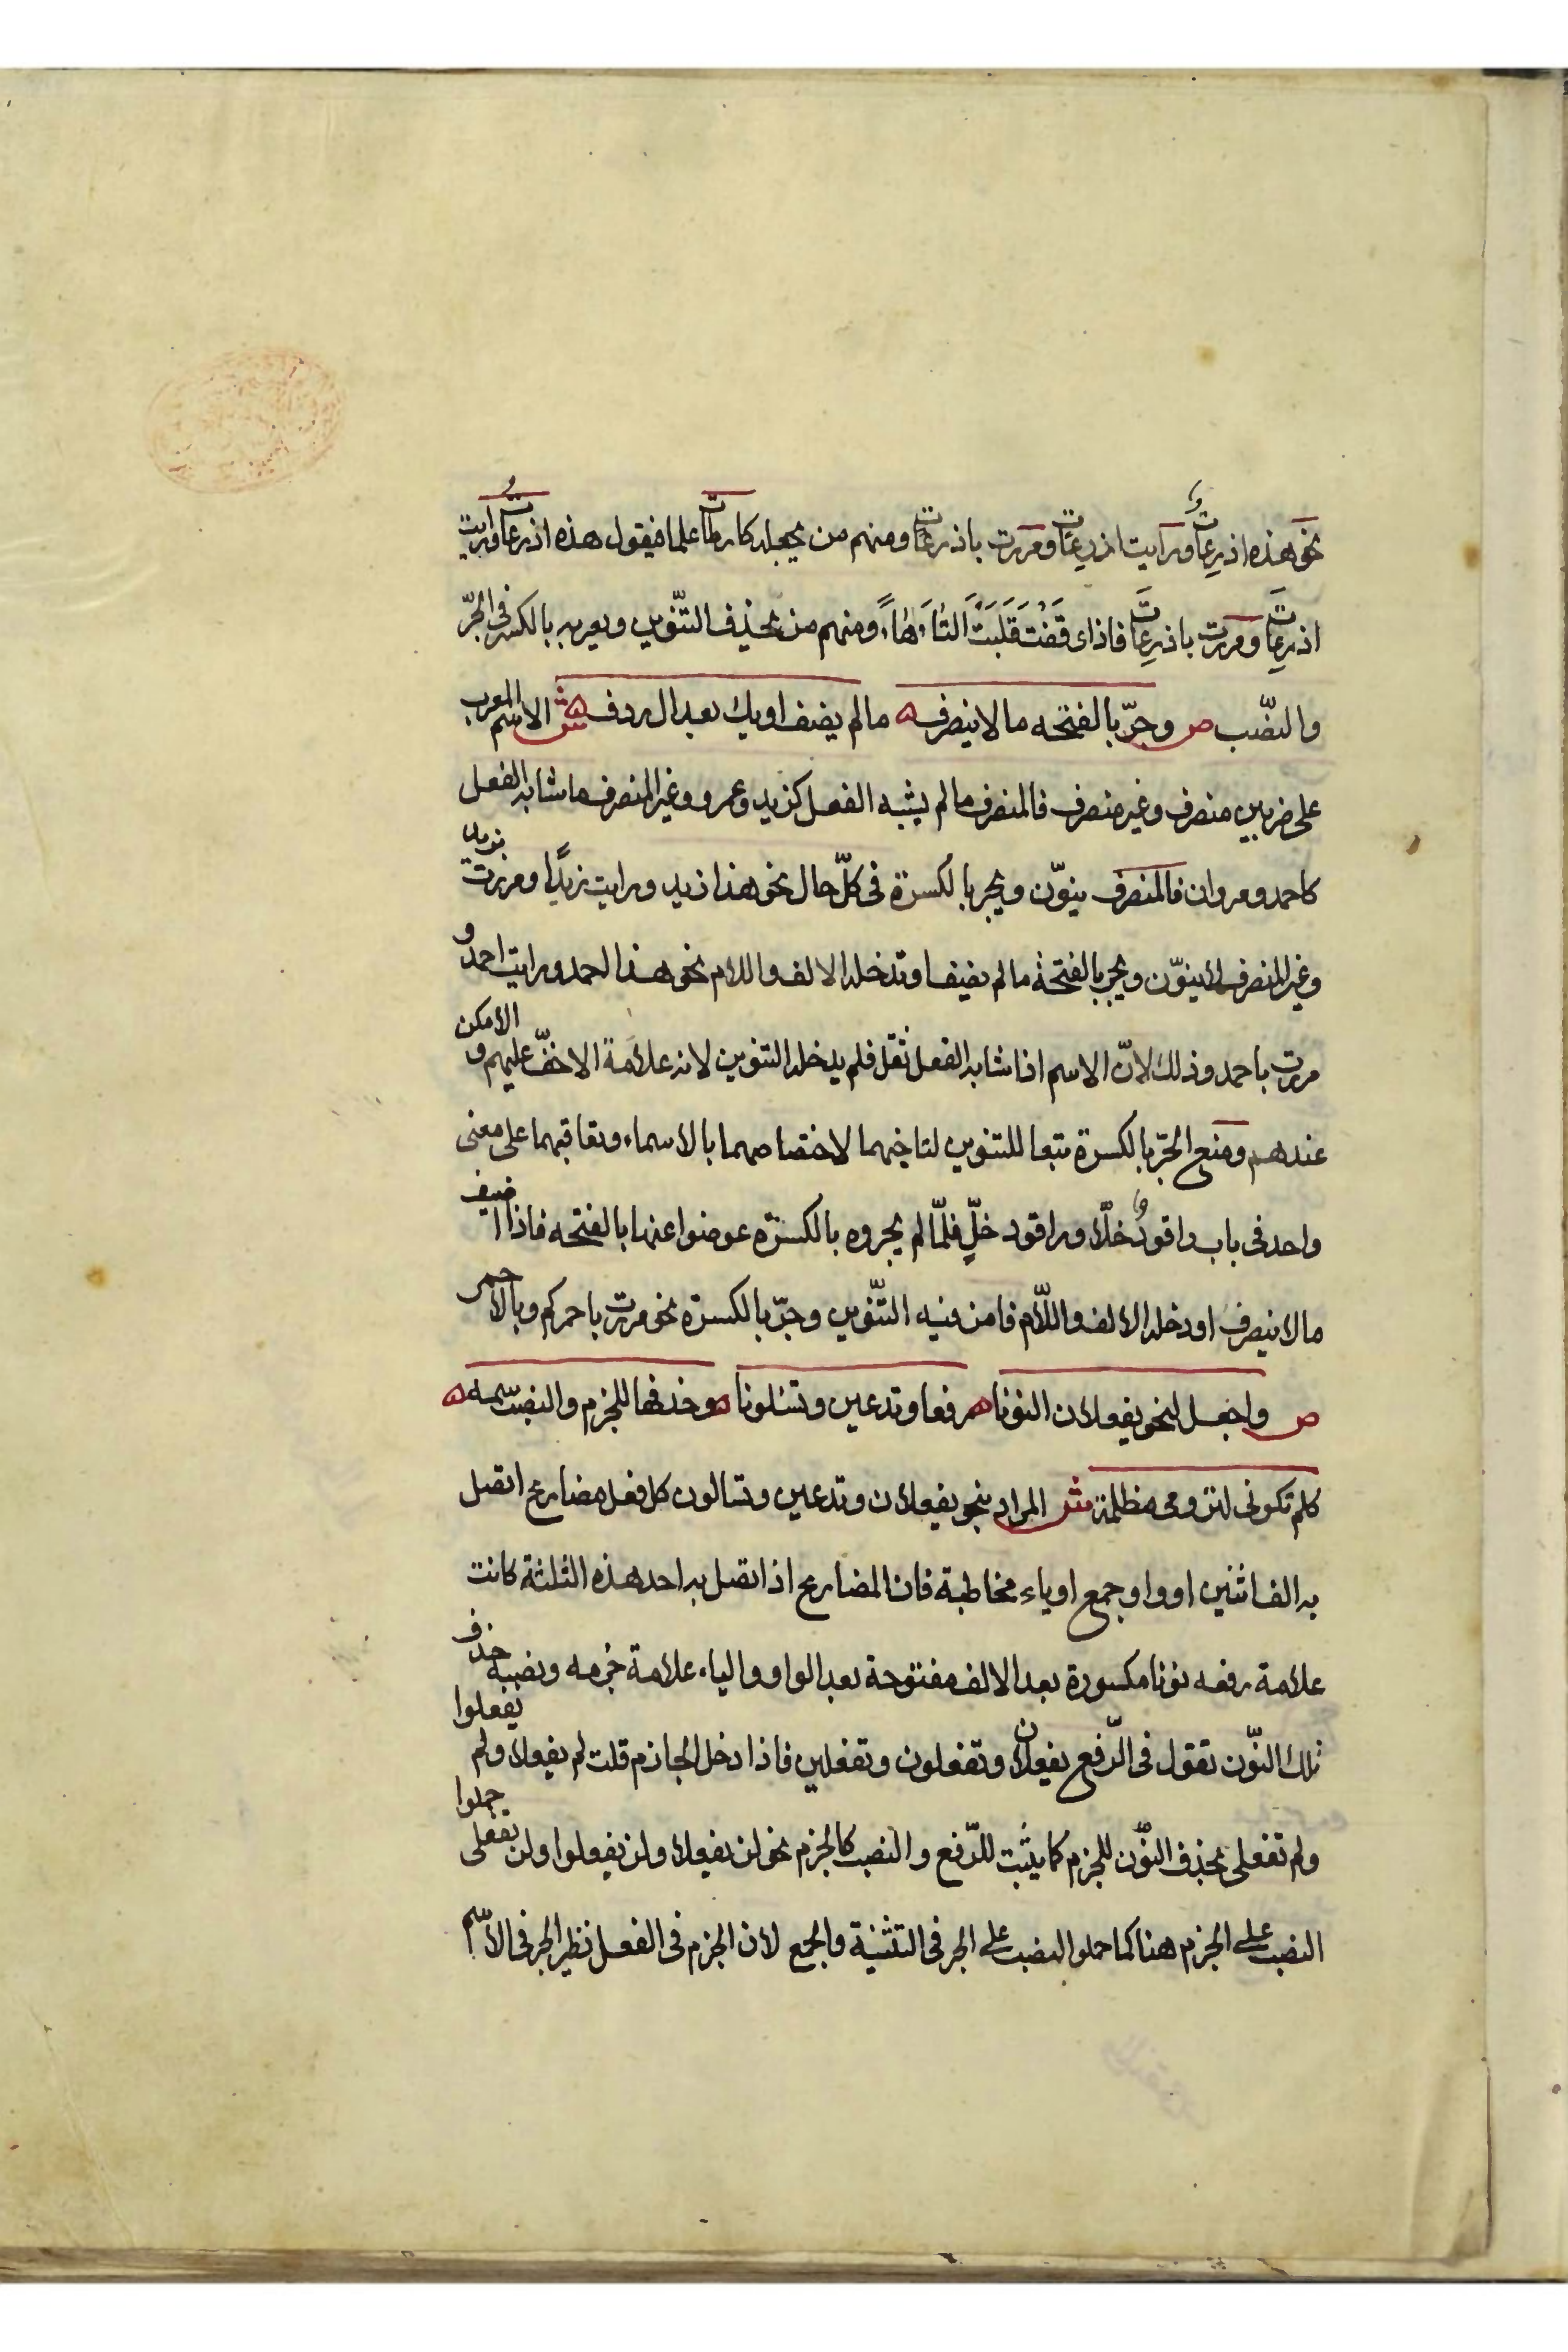 نحو هذه اذرعات ورايت اذرعات ومررت باذرعات ومنهم من يجعله كارطات علما فيقول هذه اذرعات ورايت
اذرعات ومررت باذرعات فاذا وقفت قلبت التاء هاء ومنهم من يحذف التنوين ويعربه بالكسر في الجر
والنصب ص وجر بالفتحه ما لا ينصرف ه ما لم يضف او يك بعد ال ردف ه ش الاسم المعرب
على ضربين منصرف وغير منصرف فالمنصرف ما لم يشبه الفعل كزيد وعمرو وغير المنصرف ما شابه الفعل
كاحمد ومروان فالمنصرف ينوّن ويجر بالكسرة في كلّ حال نحو هذا زيد ورايت زيدًا ومررت بزيد
وغير المنصرف لا ينوّن ويجر بالفتحة ما لم يضف او تدخله الالف واللام نحو هذا احمد ورايت احمد و
مررت باحمد وذلك لانّ الاسم اذا شابه الفعل ثقل فلم يدخله التنوين لانه علامة الاخفّ عليهم والامكن
عندهم ومنع الجرّ بالكسرة تبعا للتنوين لتاخيهما لاختصاصهما بالاسماء وتعاقبهما على معنى
واحد في باب راقود خلّا وراقود خلٍّ فلمّا لم يجروه بالكسرة عوضوا عنها بالفتحه فاذا اضيف
ما لا ينصرف او دخله الالف واللام فامن فيه التنوين وجرّ بالكسرة نحو مررت باحمركم وبالاحمر
ص واجعل لنحو يفعلان النونا ه رفعا وتدعين وتسئلونا ه وحذفها للجزم والنصب سمه ه
كلم تكوني لترومي مظلمة ش المراد بنحو يفعلان وتدعين وتسالون كل فعل مضارع اتصل
به الف اثنين او واو جمع او ياء مخاطبة فان المضارع اذا اتصل به احد هذه الثلثة كانت
علامة رفعه نونا مكسورة بعد الالف مفتوحة بعد الواو والياء علامة جزمه ونصبه حذف
تلك النّون تقول في الرّفع يفعلان وتفعلون وتفعلين فاذا دخل الجازم قلت لم يفعلا ولم يفعلوا
ولم تفعلي بحذف النّون للجزم كما يثبت للرّفع والنصب كالجزم نحو لن يفعلا ولن يفعلوا ولن تفعلي حملوا
النصب على الجزم هنا كما حملوا النصب على الجر في التثنية والجمع لان الجزم في الفعل نظير الجر في الاسم